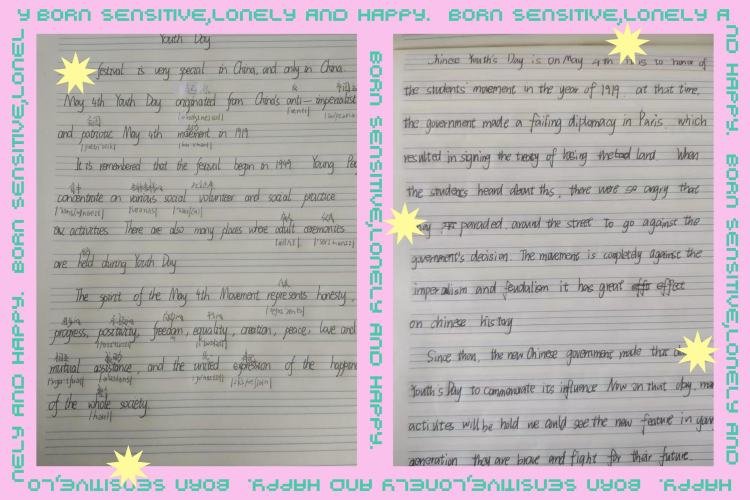 Y BORN SENSITIVE,LONELY AND HAPPY. BORN SENSITIVE,LONELY A
ND HAPPY. BORN SENSITIVE,LONELY AND HAPPY.
BORN SENSITIVE,LONELY AND HAPPY.
HAPPY. BORN SENSITIVE,LONELY AND HAPPY. BORN SENSITIVE,LO
NELY AND HAPPY. BORN SENSITIVE,LONEL
Youth Day
festival is very special in China, and only in China.
May 4th Youth Day originated from China's anti-imperialist
and patriotic May 4th movement in 1919
It is remembered that the fesrival begin in 1949. Young Peo
concentrate on various social volunteer and social practice
activities. There are also many places whose adult ceremonies
are held during Youth Day
The spirit of the May 4th Movement represents honesty,
progress, positivity, freedom, equality, creation, peace, love and
mutual assistance, and the united expression of the happine
of the whole society.
hinese Youth's Day is on May 4th is to honor of
the students' movement in the year of 1919. at that time,
the government made a failing diplomacy in Paris which
resulted in signing the treaty of losing land. When
the students heard about this, there were so angry that
paraded around the street to go against the
government's decision. The movement is completely against the
imperialism and feudalism it has great effect
on chinese history
Since then, the new Chinese government made that
Youth's Day to commomorate its influence Now on that day, ma
activites will be hold we could see the new feature in youn
generation they are brave and fight for their future.